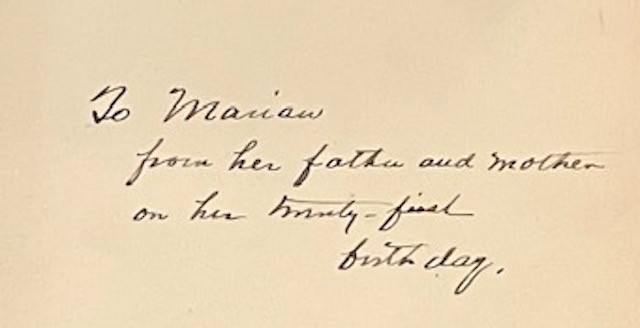 To Marian
from her father and mother
on her twenty-first
birthday.